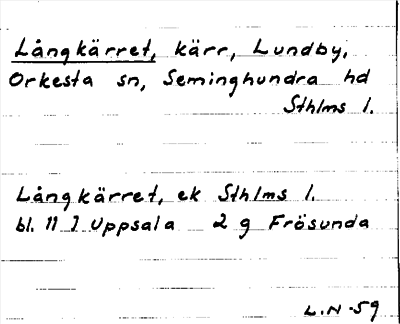 Långkärret, kärr, Lundby,
Orkesta sn, Seminghundra hd
Sthlms l.
Långkärret, ek Sthlms l.
bl. 11 I Uppsala 2 g Frösunda
L.N-59